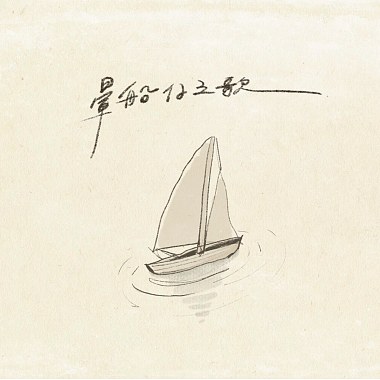 暈船仔之歌